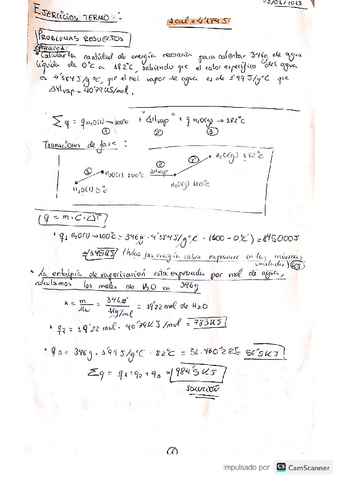 EJERCICIOS TERMO:
1 cal = 4'184 J
PROBLEMAS RESUELTOS
• Calcular la cantidad de energía necesaria para calentar 346g de agua
líquida de 0°C a 182°C, sabiendo que el calor específico del agua
es 4'184 J/g°C, que el del vapor de agua es de 1'99 J/g°C que
ΔHvap = 40'79 KJ/mol.
Σq = q H2O(l) → 100°C + "ΔHvap" + q H2O(g) → 182°C
① ② ③
TRANSICIONES de fase:
H2O(g) 182°C
H2O(l) 100°C ΔHvap
H2O(l) 0°C H2O(g) 100°C
q = m·C·ΔT
• q1 H2O(l) → 100°C = 346g · 4'184 J/g°C · (100 - 0°C) = 145000J
= 145KJ (toda la energía debe expresarse en las mismas
unidades)
• La entalpía de vaporización está expresada por mol de agua,
calculamos los moles de H2O en 346g
n = m/Mw = 346g / 18g/mol = 19'22 mol de H2O
• q2 = 19'22 mol · 40'79KJ/mol = 783KJ
• q3 = 346g · 1'99 J/g°C · 82°C = 56.460'28J = 56'5KJ
Σq = q1 + q2 + q3 = 984'5KJ
SOLUCIÓN
1
impulsado por CS CamScanner